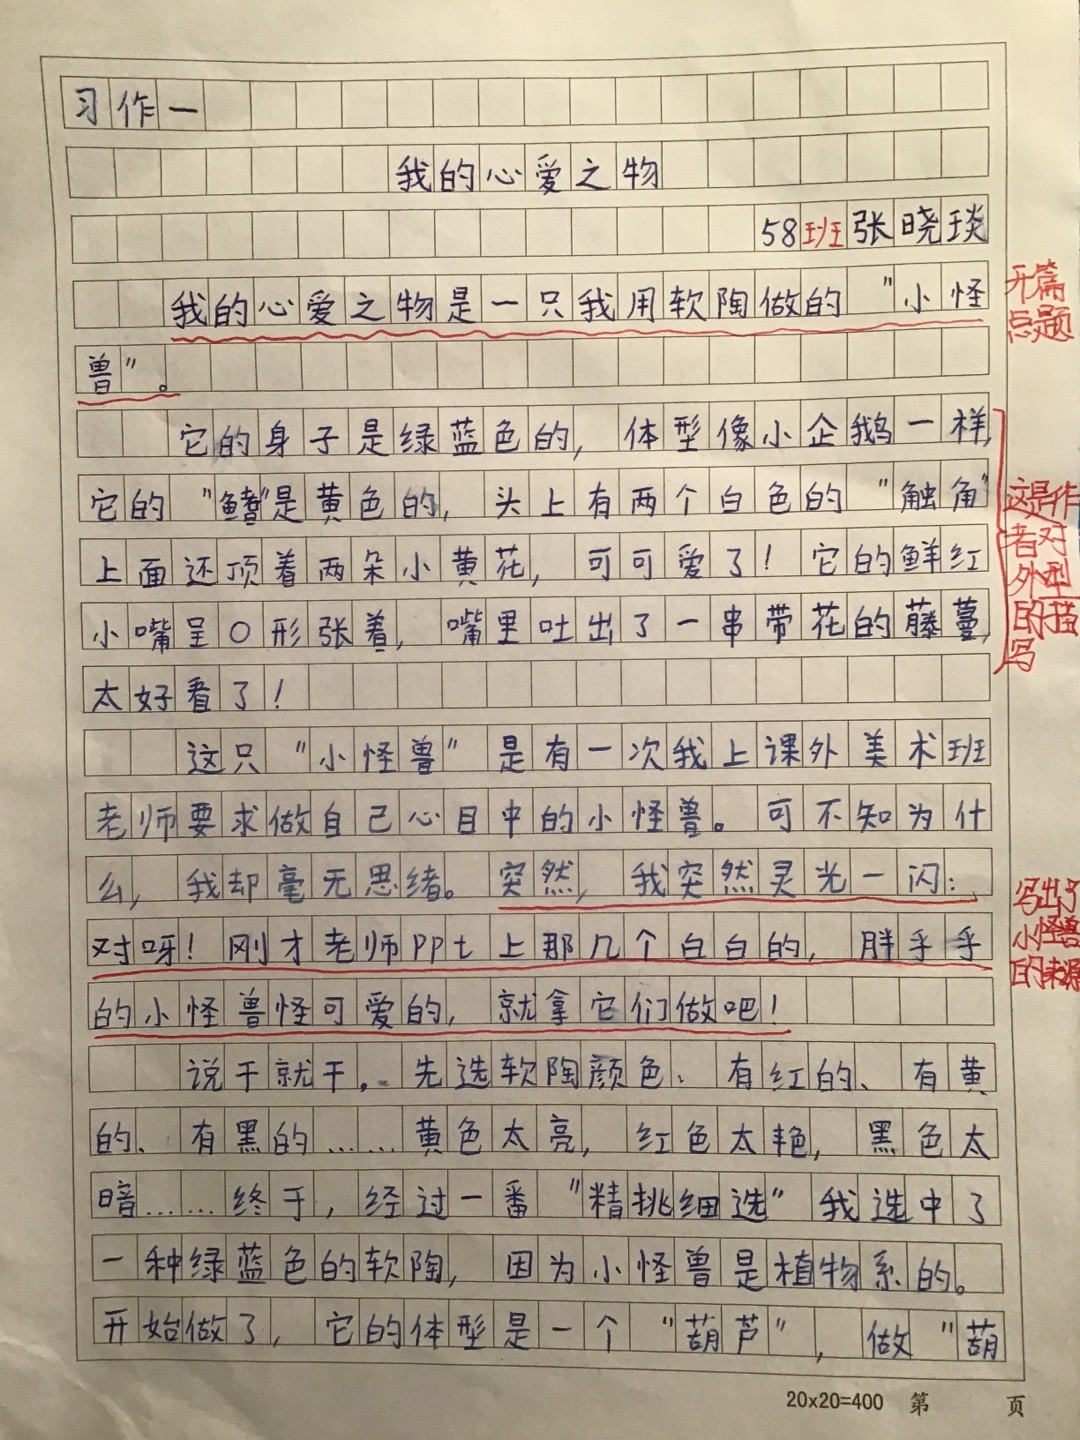 习作一
我的心爱之物
58班张晓琰
我的心爱之物是一只我用软陶做的"小怪
兽"。
开篇
总题
它的身子是绿蓝色的，体型像小企鹅一样，
它的"鳍"是黄色的，头上有两个白色的"触角"
上面还顶着两朵小黄花，可可爱了！它的鲜红
小嘴呈O形张着，嘴里吐出了一串带花的藤蔓，
太好看了！
这是作
者对
外型
的描
写
这只"小怪兽"是有一次我上课外美术班
老师要求做自己心目中的小怪兽。可不知为什
么，我却毫无思绪。突然，我突然灵光一闪：
对呀！刚才老师PPt上那几个白白的，胖乎乎
的小怪兽怪可爱的，就拿它们做吧！
写出了
小怪兽
的来源
说干就干，先选软陶颜色、有红的、有黄
的、有黑的……黄色太亮，红色太艳，黑色太
暗……终于，经过一番"精挑细选"我选中了
一种绿蓝色的软陶，因为小怪兽是植物系的。
开始做了，它的体型是一个"葫芦"，做"葫
20x20=400 第 页